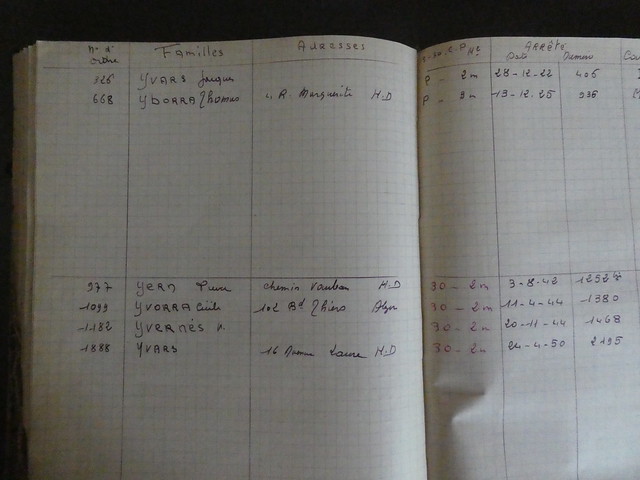 n° d'ordre Familles Adresses Arrêté
Date Numéro
326 YVARS Jacques P - 2m 28-12-22 406
668 YBORRA Thomas 4 R. Marguerite H-D P - 3m 13-12-25 936
977 YERN chemin Vauban H-D 30 - 2m 3-8-42 1252
1099 YVORRA Cécile 102 Bd Thiers Alger 30 - 2m 11-4-44 1380
1182 YVERNÉS 30 - 2m 20-11-44 1468
1888 YVARS 16 Avenue H-D 30 - 2m 24-4-50 2195